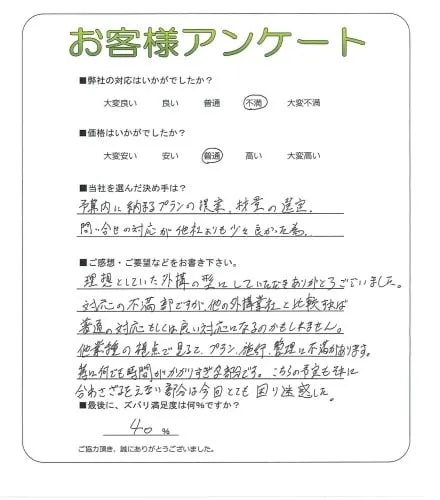 お客様アンケート
■弊社の対応はいかがでしたか？
大変良い 良い 普通 不満 大変不満
■価格はいかがでしたか？
大変安い 安い 普通 高い 大変高い
■当社を選んだ決め手は？
予算内に納まるプランの提案、検量の選定、
問い合せの対応が他社よりも少々良かった為
■ご感想・ご要望などをお書き下さい。
理想としていた外構の型にしていただきありがとうございました。
対応の不満部ですが、他の外構業社と比較すれば
普通の対応もしくは良い対応になるのかもしれません。
他業種の視点で見ると、プラン、施行、整理に不満があります。
特に何でも時間がかかりすぎる部分です。こちらの予定も
合わさざるをえない部分は今回とても困り迷惑した。
■最後に、ズバリ満足度は何%ですか？
40 %
ご協力頂き、誠にありがとうございました。